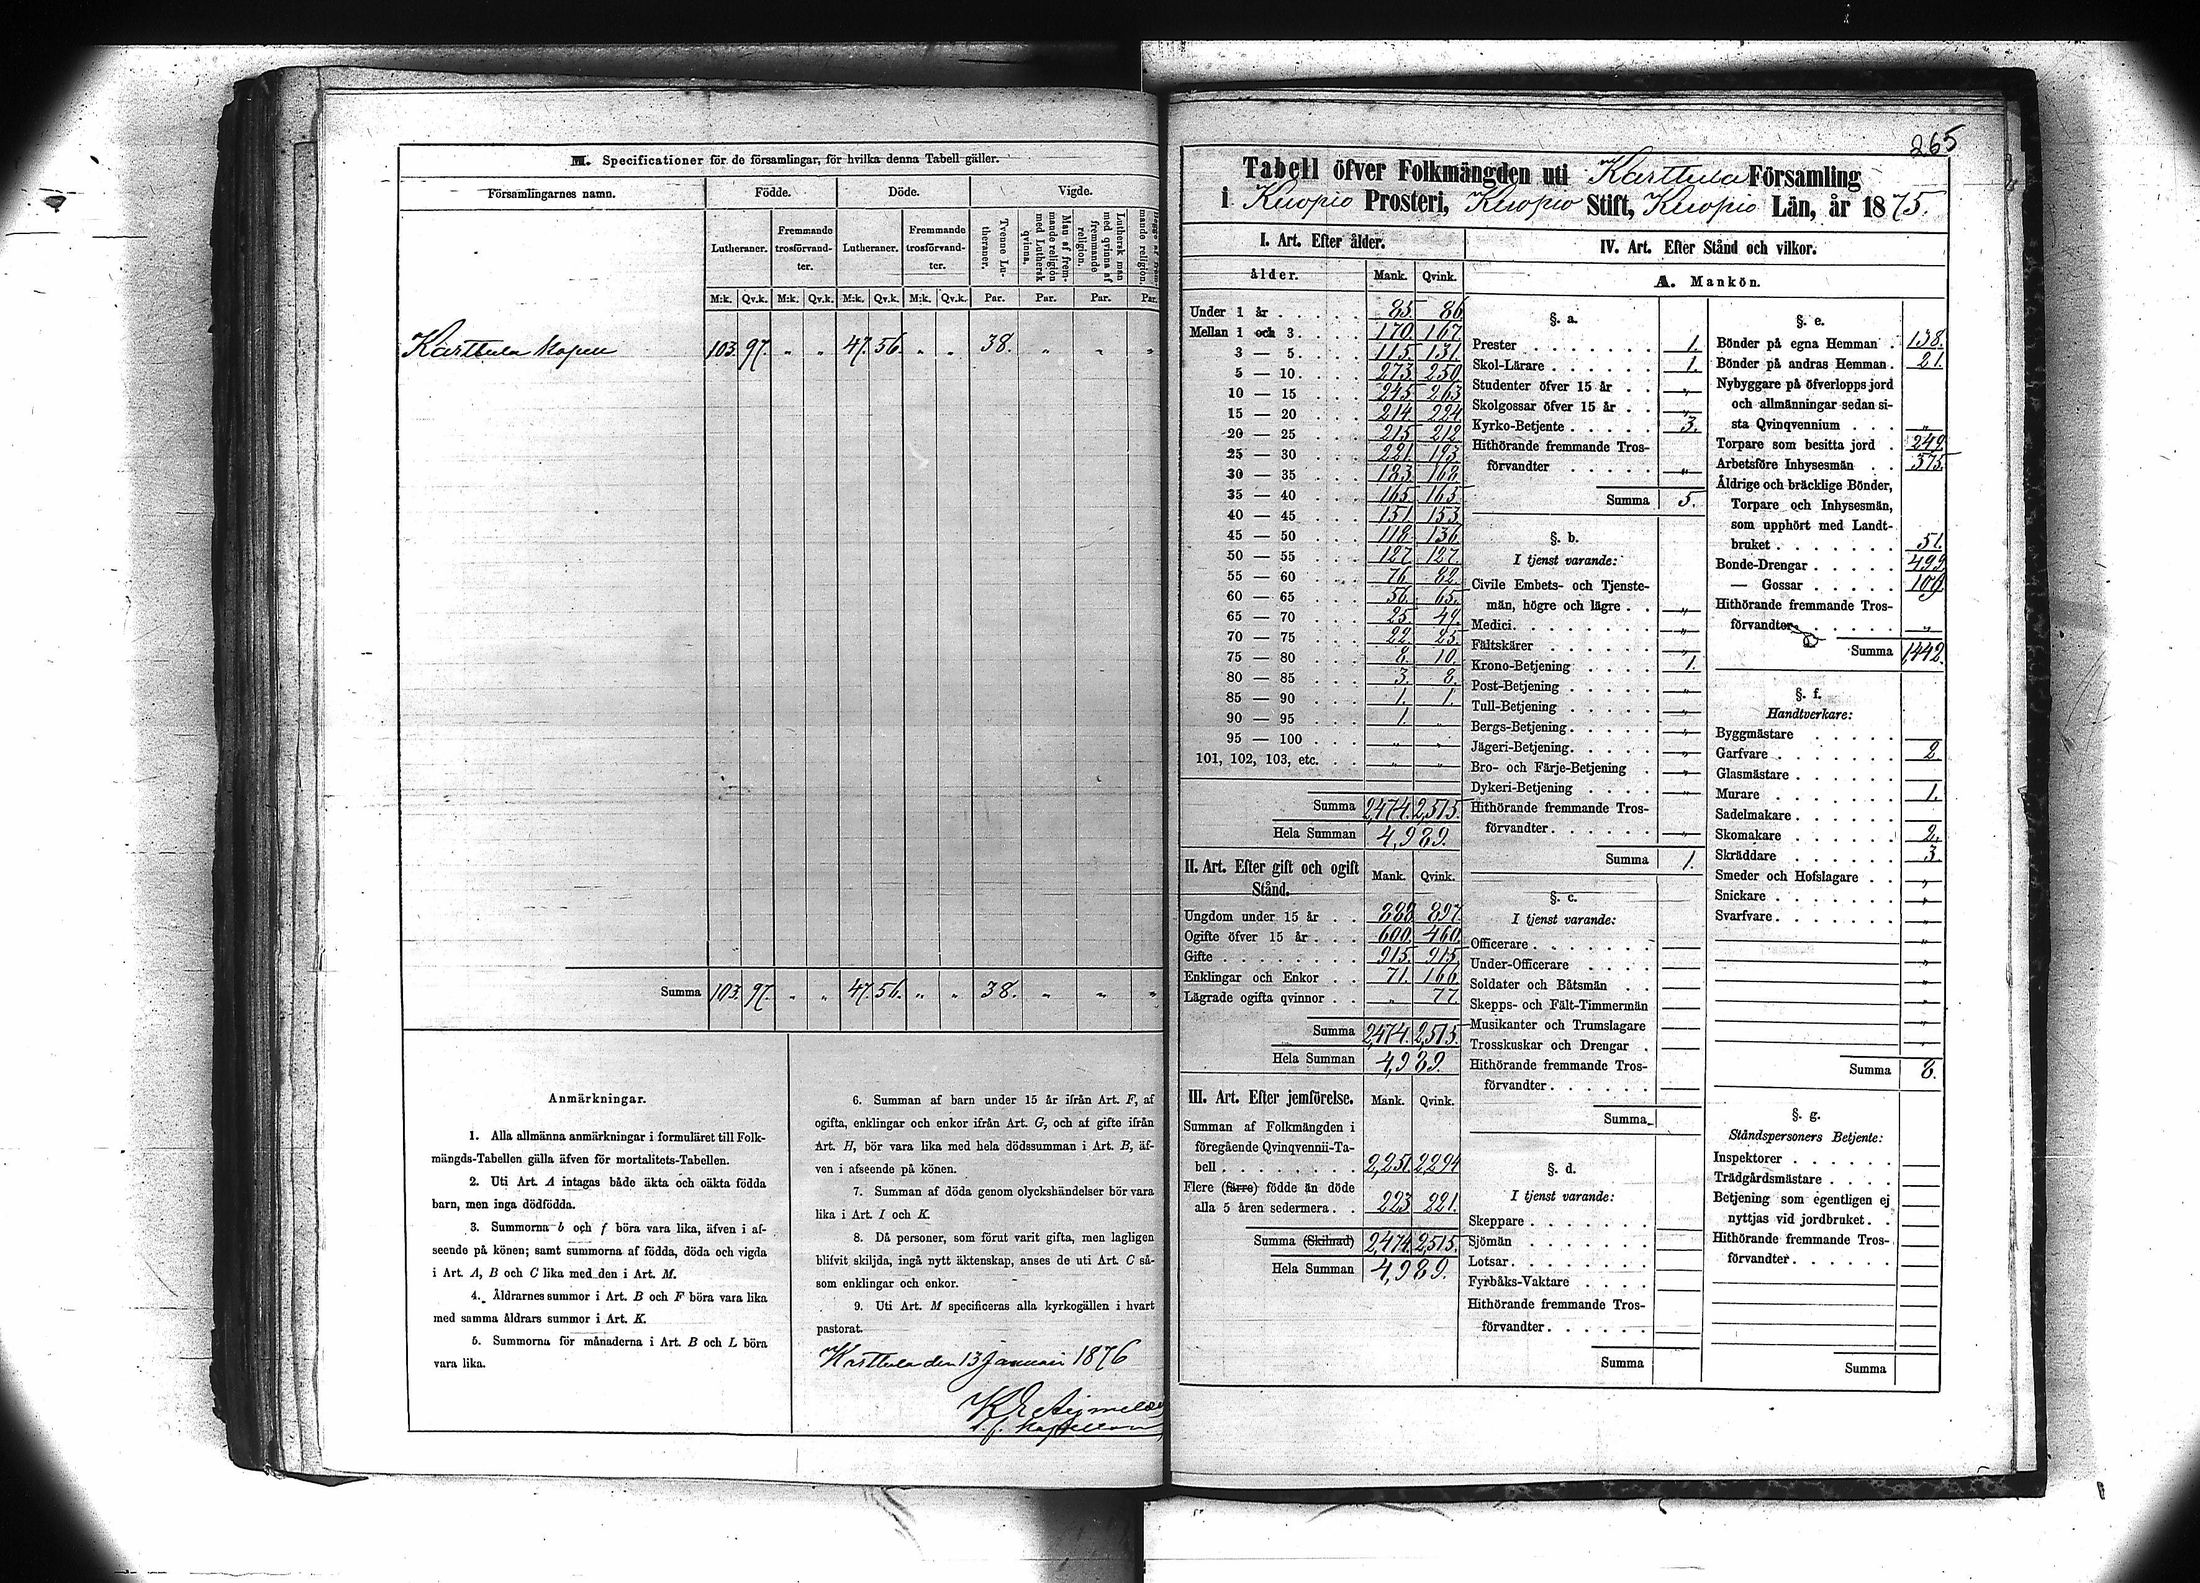 M. Specificationer för de församlingar, för hvilka denna Tabell gäller.
Församlingarnes namn. Födde. Döde. Vigde.
Lutheraner. Fremmande trosförvandter. Lutheraner. Fremmande trosförvandter. Tvenne Lutheraner. Man af fremmande religion med Luthersk qvinna. Luthersk man med qvinna af fremmande religion.
M:k. Qv.k. M:k. Qv.k. M:k. Qv.k. M:k. Qv.k. Par. Par. Par. Par.
Karttula Kapell 103. 97. „ „ 47. 56. „ „ 38. „ „ „
Summa 103. 97. „ „ 47. 56. „ „ 38. „ „ „
Anmärkningar.
1. Alla allmänna anmärkningar i formuläret till Folk-
mängds-Tabellen gälla äfven för mortalitets-Tabellen.
2. Uti Art. A intagas både äkta och oäkta födda
barn, men inga dödfödda.
3. Summorna b och f böra vara lika, äfven i af-
seende på könen; samt summorna af födda, döda och vigda
i Art. A, B och C lika med den i Art. M.
4. Åldrarnes summor i Art. B och F böra vara lika
med samma åldrars summor i Art. K.
5. Summorna för månaderna i Art. B och L böra
vara lika.
6. Summan af barn under 15 år ifrån Art. F, af
ogifta, enklingar och enkor ifrån Art. G, och af gifte ifrån
Art. H, bör vara lika med hela dödssumman i Art. B, äf-
ven i afseende på könen.
7. Summan af döda genom olyckshändelser bör vara
lika i Art. I och K.
8. Då personer, som förut varit gifta, men lagligen
blifvit skiljda, ingå nytt äktenskap, anses de uti Art. C så-
som enklingar och enkor.
9. Uti Art. M specificeras alla kyrkogällen i hvart
pastorat.
Karttula den 13 Januari 1876
265
Tabell öfver Folkmängden uti Karttula Församling
i Kuopio Prosteri, Kuopio Stift, Kuopio Län, år 1875.
I. Art. Efter ålder.
ålder. Mank. Qvink.
Under 1 år 85. 86.
Mellan 1 och 3 170. 167.
3 — 5 115. 131.
5 — 10 273. 250.
10 — 15 245. 263.
15 — 20 214. 224.
20 — 25 215. 212.
25 — 30 221. 193.
30 — 35 183. 168.
35 — 40 165. 165.
40 — 45 151. 153.
45 — 50 118. 136.
50 — 55 127. 127.
55 — 60 76. 82.
60 — 65 56. 65.
65 — 70 25. 49.
70 — 75 22. 25.
75 — 80 8. 10.
80 — 85 3. 8.
85 — 90 1. 1.
90 — 95 1. „
95 — 100 „ „
101, 102, 103, etc. „ „
Summa 2,474. 2,515.
Hela Summan 4,989.
II. Art. Efter gift och ogift
Stånd. Mank. Qvink.
Ungdom under 15 år 888. 897.
Ogifte öfver 15 år 600. 460.
Gifte 915. 915.
Enklingar och Enkor 71. 166.
Lägrade ogifta qvinnor „ 77.
Summa 2,474. 2,515.
Hela Summan 4,989.
III. Art. Efter jemförelse. Mank. Qvink.
Summan af Folkmängden i
föregående Qvinqvennii-Ta-
bell 2,251. 2294
Flere (färre) födde än döde
alla 5 åren sedermera 223. 221.
Summa (Skilnad) 2,474. 2,515.
Hela Summan 4,989.
IV. Art. Efter Stånd och vilkor.
A. Mankön.
§. a.
Prester 1.
Skol-Lärare 1.
Studenter öfver 15 år „
Skolgossar öfver 15 år „
Kyrko-Betjente 3.
Hithörande fremmande Tros-
förvandter „
Summa 5.
§. b.
I tjenst varande:
Civile Embets- och Tjenste-
män, högre och lägre „
Medici „
Fältskärer „
Krono-Betjening 1.
Post-Betjening „
Tull-Betjening „
Bergs-Betjening „
Jägeri-Betjening „
Bro- och Färje-Betjening „
Dykeri-Betjening „
Hithörande fremmande Tros-
förvandter „
Summa 1.
§. c.
I tjenst varande:
Officerare
Under-Officerare
Soldater och Båtsmän
Skepps- och Fält-Timmermän
Musikanter och Trumslagare
Trosskuskar och Drengar
Hithörande fremmande Tros-
förvandter
Summa
§. d.
I tjenst varande:
Skeppare
Sjömän
Lotsar
Fyrbåks-Vaktare
Hithörande fremmande Tros-
förvandter
Summa
§. e.
Bönder på egna Hemman 138.
Bönder på andras Hemman 21.
Nybyggare på öfverlopps jord
och allmänningar sedan si-
sta Qvinqvennium „
Torpare som besitta jord 249.
Arbetsföre Inhysesmän 375.
Åldrige och bräcklige Bönder,
Torpare och Inhysesmän,
som upphört med Landt-
bruket 51.
Bonde-Drengar 499.
— Gossar 109.
Hithörande fremmande Tros-
förvandter „
Summa 1,442.
§. f.
Handtverkare:
Byggmästare
Garfvare 2.
Glasmästare
Murare 1.
Sadelmakare
Skomakare 2.
Skräddare 3.
Smeder och Hofslagare „
Snickare „
Svarfvare „
Summa 8.
§. g.
Ståndspersoners Betjente:
Inspektorer
Trädgårdsmästare
Betjening som egentligen ej
nyttjas vid jordbruket
Hithörande fremmande Tros-
förvandter
Summa